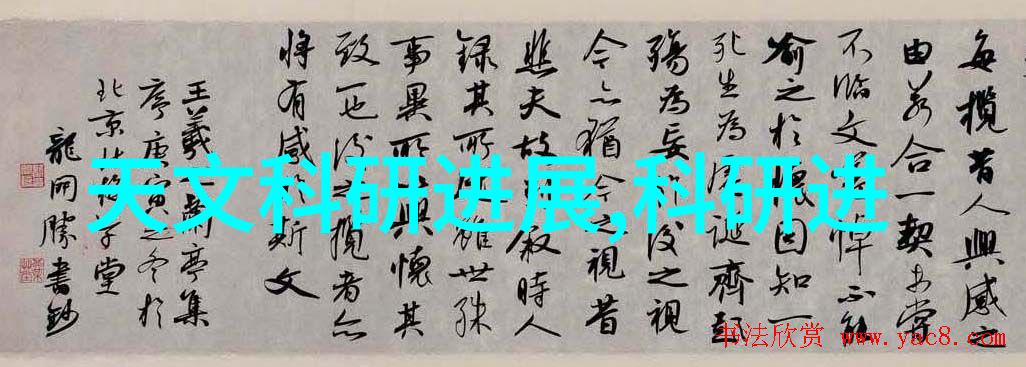 天文科研进展,科研进
每攬昔人興感之
由若合一契未嘗
不临文嗟悼不能
喻之於懷因知一
死生為虛誕齊彭
殤為妄作後之視
今亦猶今之視昔
悲夫故列叙時人
録其所述雖世殊
事異所以興懷其
致一也後之攬者亦
將有感於斯文
王羲之蘭亭集
序庚寅之冬於
北京堂
龍開勝書鈔
书法欣赏 www.yac8.com